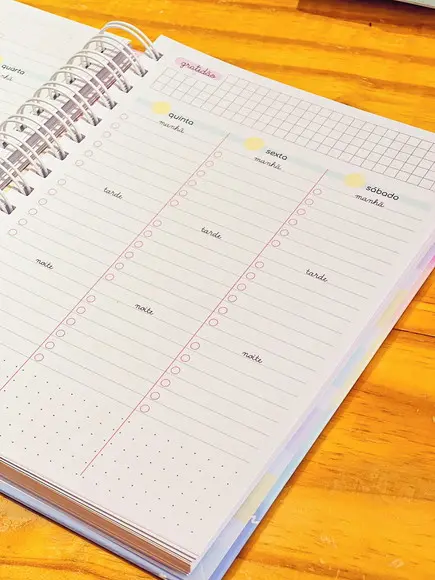 quarta
manhã
tarde
noite
gratidão
quinta
manhã
tarde
noite
sexta
manhã
tarde
noite
sábado
manhã